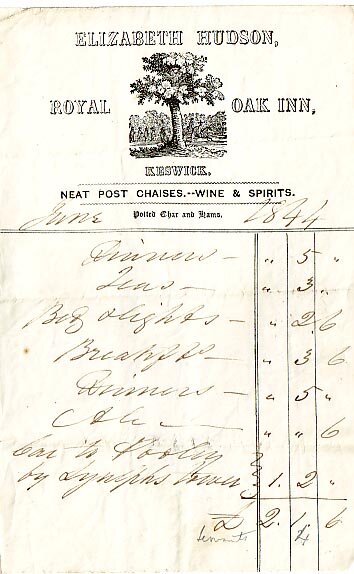 ELIZABETH HUDSON,
ROYAL OAK INN,
KESWICK.
NEAT POST CHAISES.--WINE & SPIRITS.
Potted Char and Hams.
June 1844
Dinners — " 5 "
Teas — " 3 "
Bed & lights — " 2 6
Breakfts — " 3 6
Dinners — " 5 "
Ale — " " 6
Car to Pooley
by Lyulphs tower 1. 2 "
£ 2. 1. 6
Servants 4